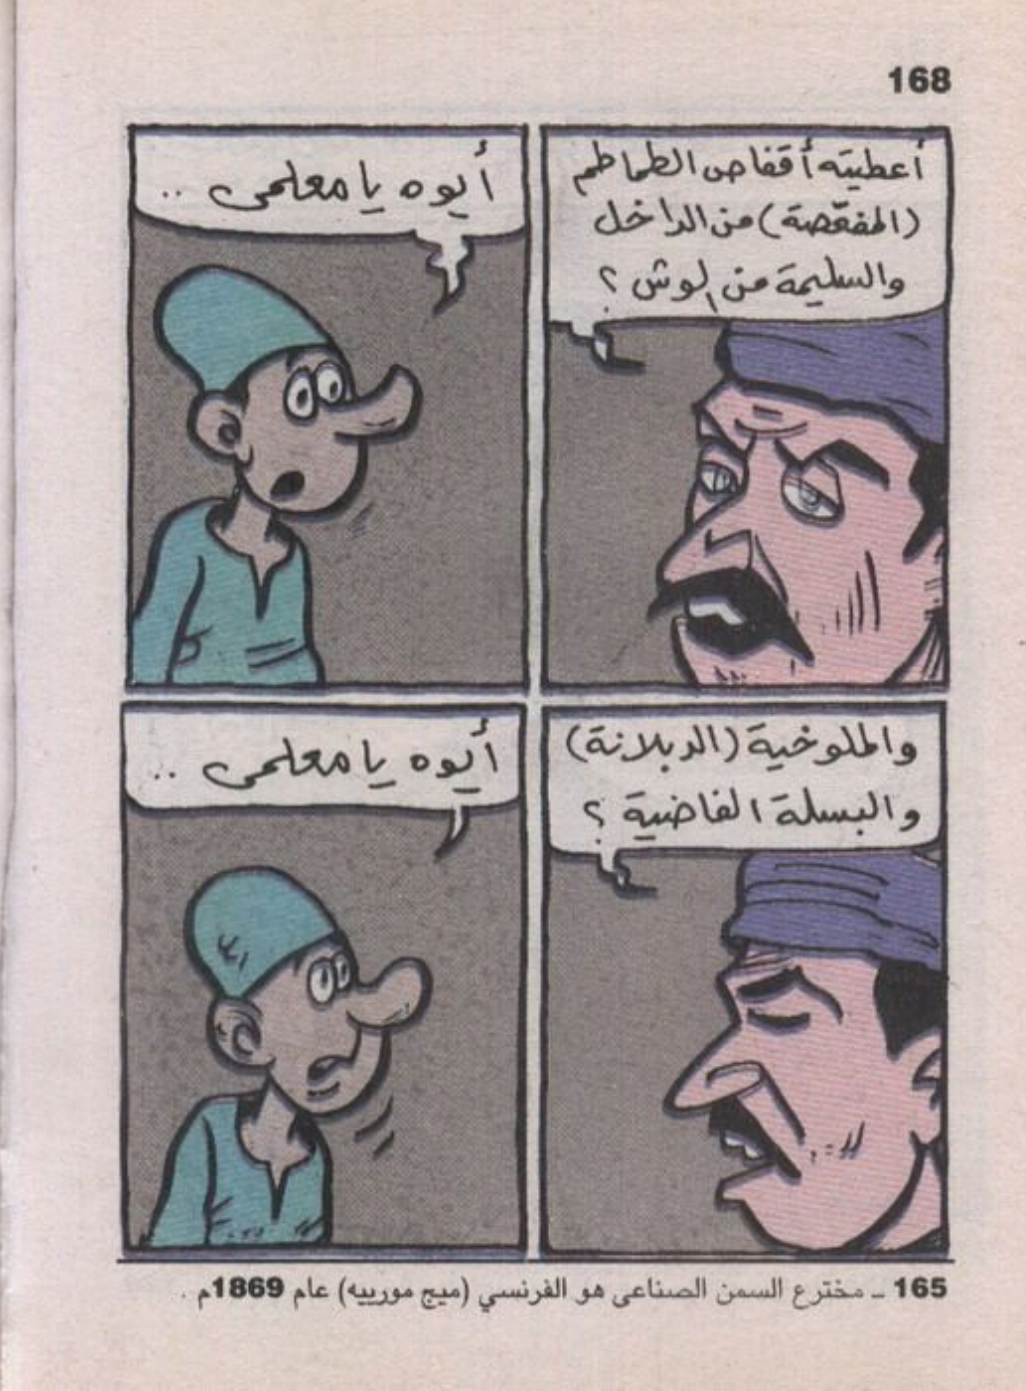 168
أعطيته أقفاص الطماطم
(المفقصة) من الداخل
والسليمة من الوش ؟
أيوه يا معلمى ..
والملوخية (الدبلانة)
والبسلة الفاضية ؟
أيوه يا معلمى ..
165 ـ مخترع السمن الصناعى هو الفرنسي (ميج مورييه) عام 1869م .